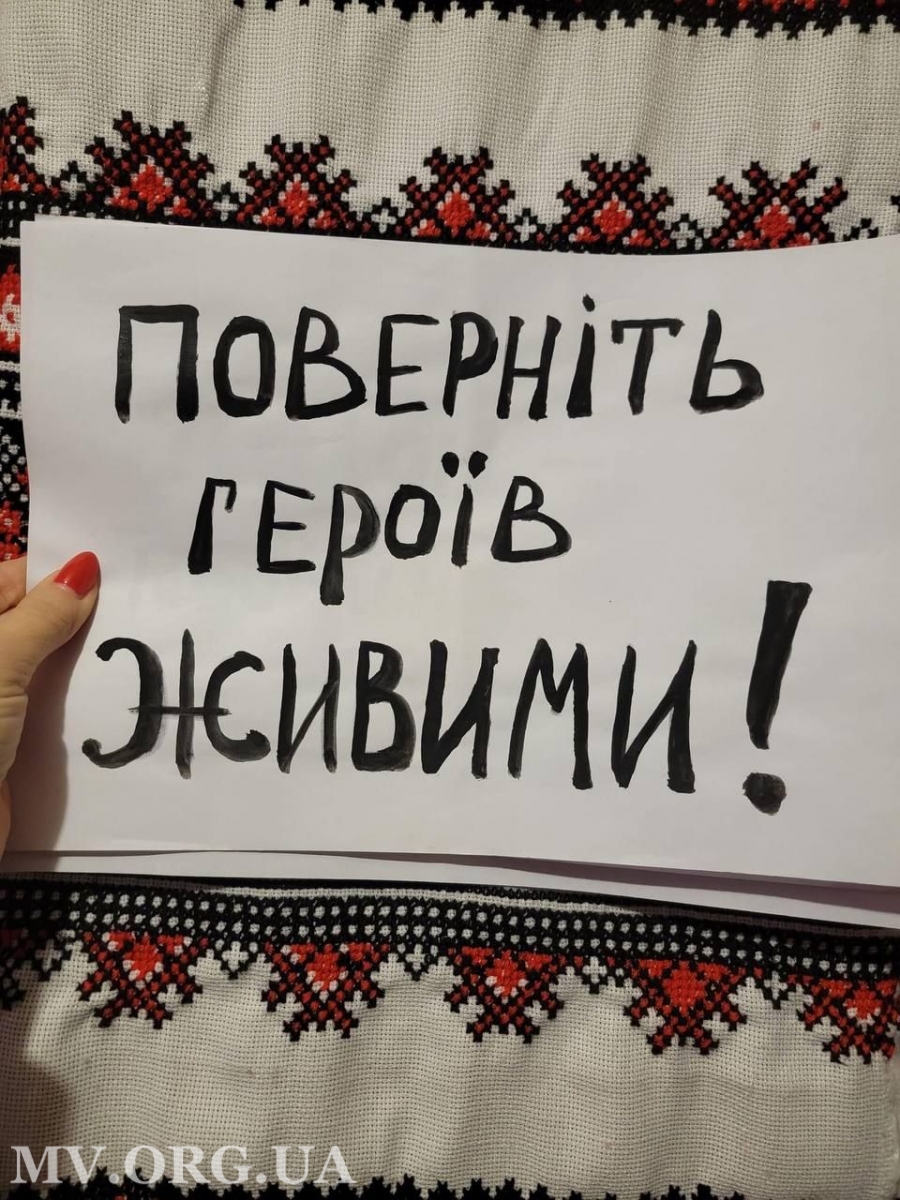 ПОВЕРНІТЬ
ГЕРОЇВ
ЖИВИМИ!
MV.ORG.UA